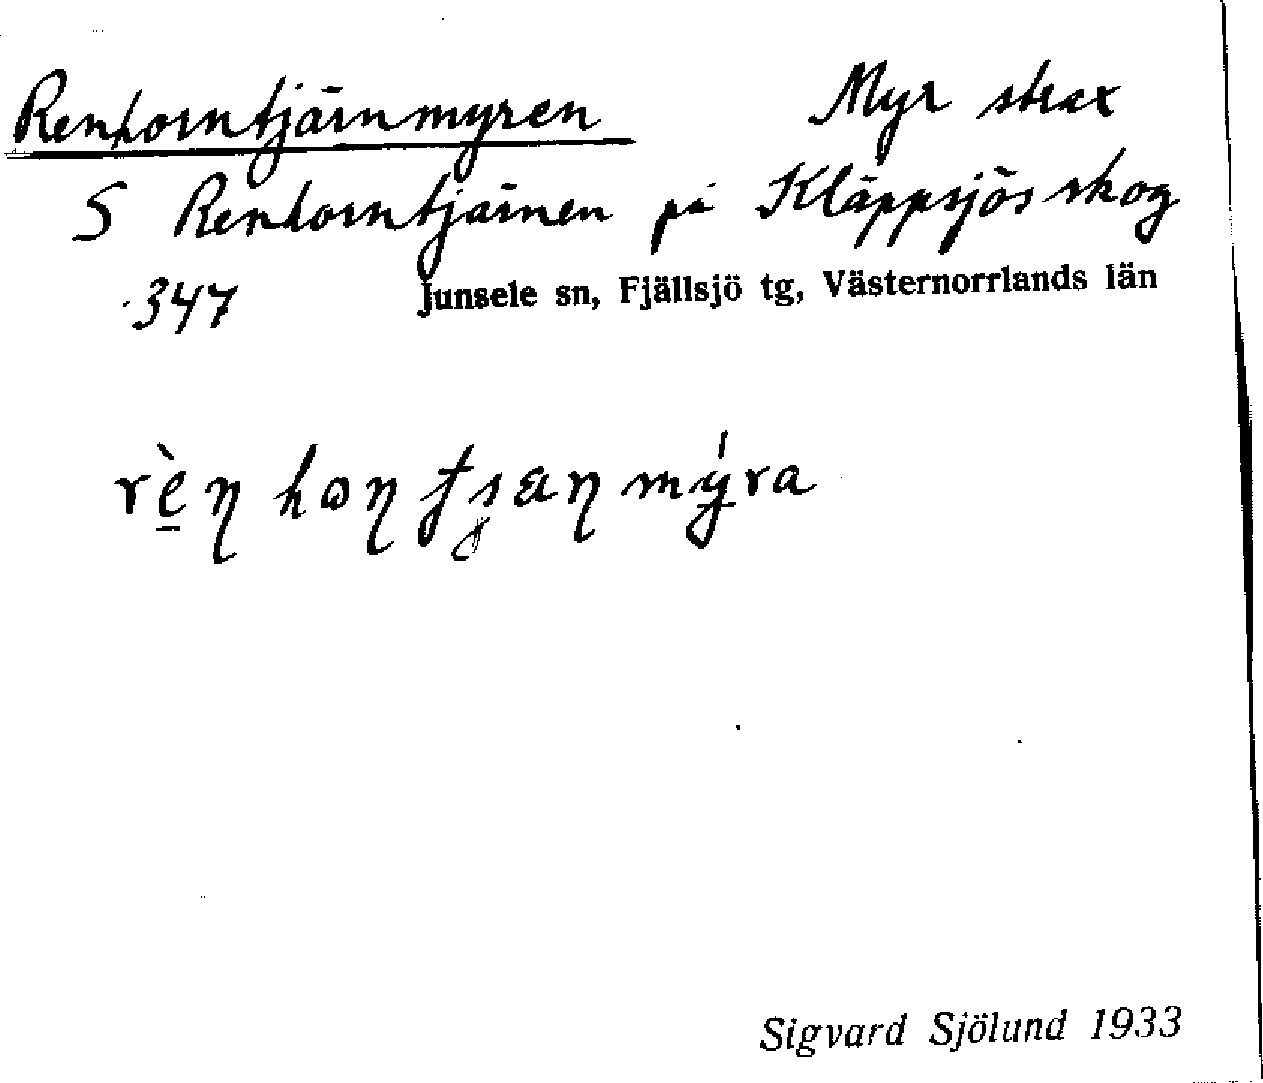 Renhorntjärnmyren Myr strax
S Renhorntjärnen på Kläppsjös skog
347 Junsele sn, Fjällsjö tg, Västernorrlands län
Sigvard Sjölund 1933